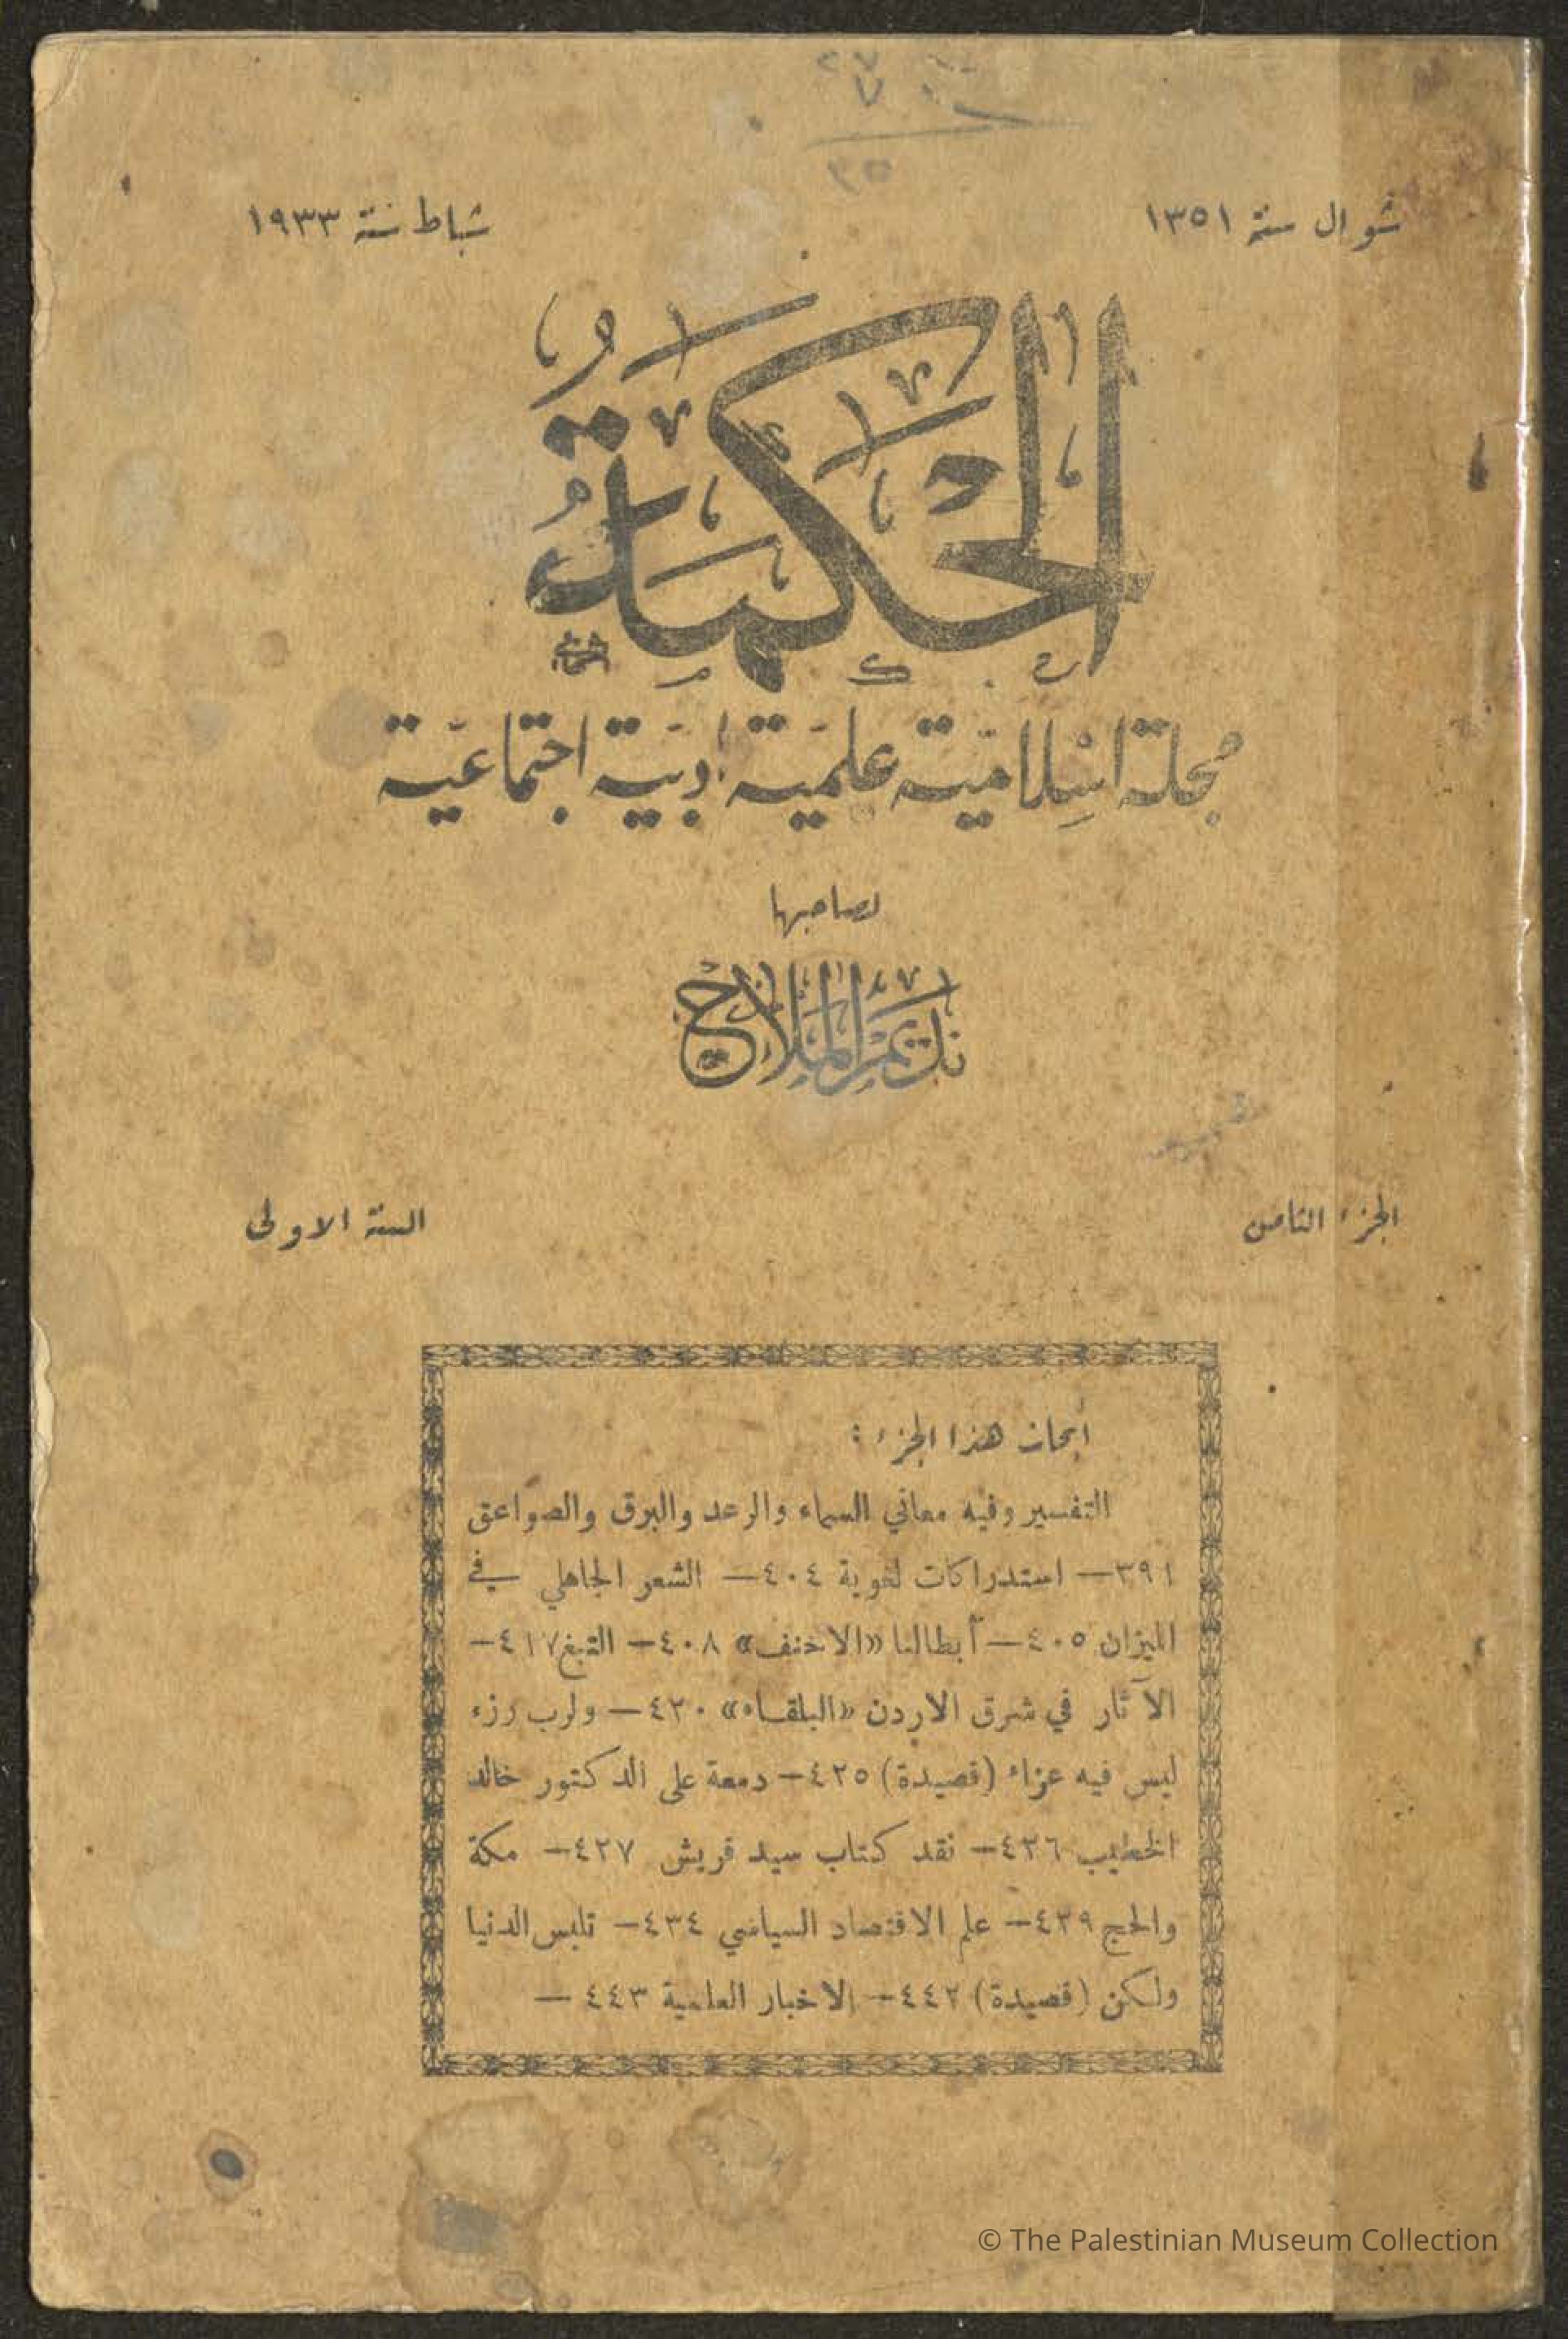 شوال سنة ١٣٥١
شباط سنة ١٩٣٣
الحكمة
مجلة اسلامية علمية ادبية اجتماعية
لصاحبها
نديم الملاح
الجزء الثامن
السنة الاولى
أبحاث هذا الجزء :
التفسير وفيه معاني السماء والرعد والبرق والصواعق
٣٩١— استدراكات لغوية ٤٠٤— الشعر الجاهلي في
الميزان ٤٠٥— أبطالنا «الاحنف» ٤٠٨— التبغ ٤١٧—
الآثار في شرق الاردن «البلقاء» ٤٢٠— ولرب رزء
ليس فيه عزاء (قصيدة) ٤٢٥— دمعة على الدكتور خالد
الخطيب ٤٢٦— نقد كتاب سيد قريش ٤٢٧— مكة
والحج ٤٢٩— علم الاقتصاد السياسي ٤٣٤— تلبس الدنيا
ولكن (قصيدة) ٤٤٢— الاخبار العلمية ٤٤٣—
© The Palestinian Museum Collection